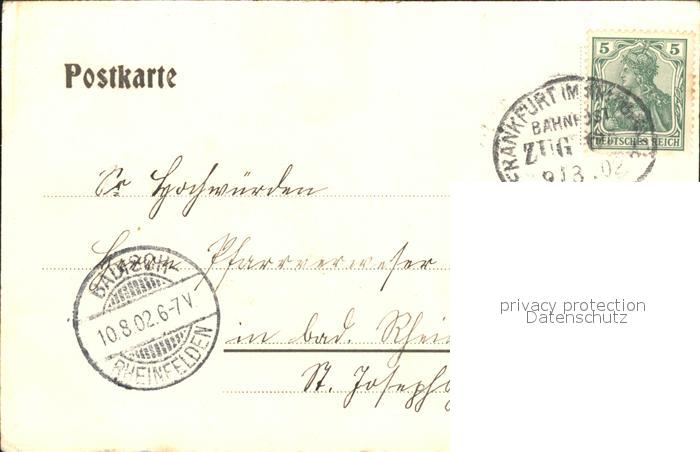 Postkarte
5 5
DEUTSCHES REICH
FRANKFURT (M
BAHNPOST
ZUG
02
Sr Hochwürden
Herrn Pfarrverweser
in bad. Rhein
St. Josephs
BAD.
10.8.02 6-7V.
RHEINFELDEN
privacy protection
Datenschutz